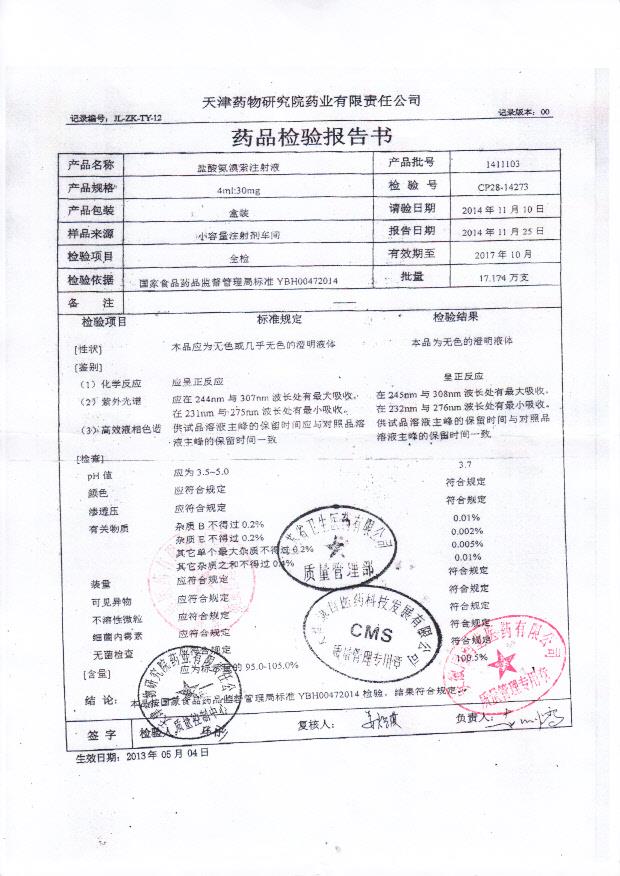 天津药物研究院药业有限责任公司
记录编号：JL-ZK-TY-12 记录版本：00
药品检验报告书
产品名称 盐酸氨溴索注射液 产品批号 1411103
产品规格 4ml:30mg 检 验 号 CP28-14273
产品包装 盒装 请验日期 2014 年 11 月 10 日
样品来源 小容量注射剂车间 报告日期 2014 年 11 月 25 日
检验项目 全检 有效期至 2017 年 10 月
检验依据 国家食品药品监督管理局标准 YBH00472014 批量 17.174 万支
备 注 ——
检验项目 标准规定 检验结果
[性状] 本品应为无色或几乎无色的澄明液体 本品为无色的澄明液体
[鉴别]
（1）化学反应 应呈正反应 呈正反应
（2）紫外光谱 应在 244nm 与 307nm 波长处有最大吸收， 在 245nm 与 308nm 波长处有最大吸收，
在 231nm 与 275nm 波长处有最小吸收。 在 232nm 与 276nm 波长处有最小吸收。
（3）高效液相色谱 供试品溶液主峰的保留时间应与对照品溶 供试品溶液主峰的保留时间与对照品
液主峰的保留时间一致 溶液主峰的保留时间一致
[检查]
pH 值 应为 3.5~5.0 3.7
颜色 应符合规定 符合规定
渗透压 应符合规定 符合规定
有关物质 杂质 B 不得过 0.2% 0.01%
杂质 E 不得过 0.2% 0.002%
其它单个最大杂质不得过 0.2% 0.005%
其它杂质之和不得过 0.4% 0.01%
装量 应符合规定 符合规定
可见异物 应符合规定 符合规定
不溶性微粒 应符合规定 符合规定
细菌内毒素 应符合规定 符合规定
无菌检查 应符合规定 符合规定
[含量] 应为标示量的 95.0-105.0% 100.5%
结 论： 本品按国家食品药品监督管理局标准 YBH00472014 检验，结果符合规定。
签 字 检验人： 复核人： 负责人：
生效日期：2013 年 05 月 04 日
省卫生医药有限公司
质量管理部
医药科技发展有限公司
CMS
质量管理专用章
药物研究院药业有限责任公
质量控制中心
医药有限公司
质量管理专用章